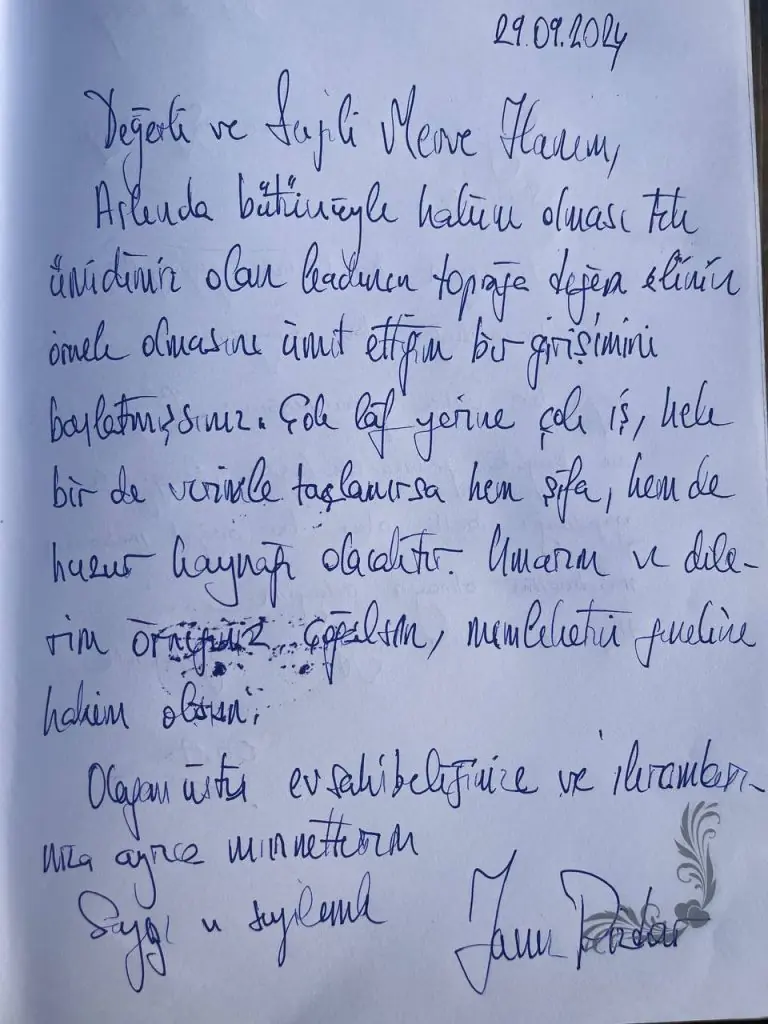 29.09.2024
Değerli ve Sevgili Merve Hanım,
Aslında bütünüyle hakim olması tek
ümidimiz olan kadının toprağa değen elinin
örnek olmasını ümit ettiğim bir girişimini
başlatmışsınız. Çok lâf yerine çok iş, hele
bir de verimle taçlanırsa hem şifa, hem de
huzur kaynağı olacaktır. Umarım ve dile-
rim örneğiniz çoğalsın, memleketin geneline
hakim olsun.
Olağanüstü evsahibeliğinize ve ikramları-
nıza ayrıca minnettarım
Saygı ve sevgilerimle